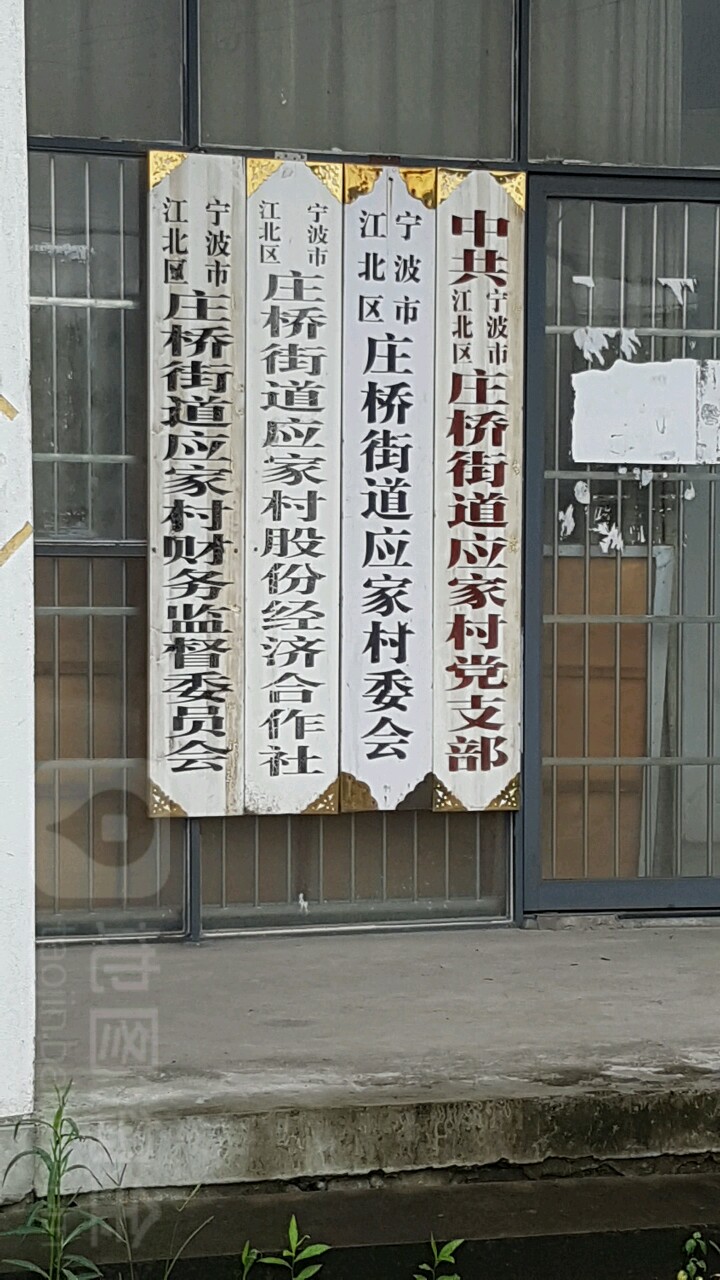 中共宁波市江北区庄桥街道应家村党支部
宁波市江北区庄桥街道应家村委会
宁波市江北区庄桥街道应家村股份经济合作社
宁波市江北区庄桥街道应家村财务监督委员会